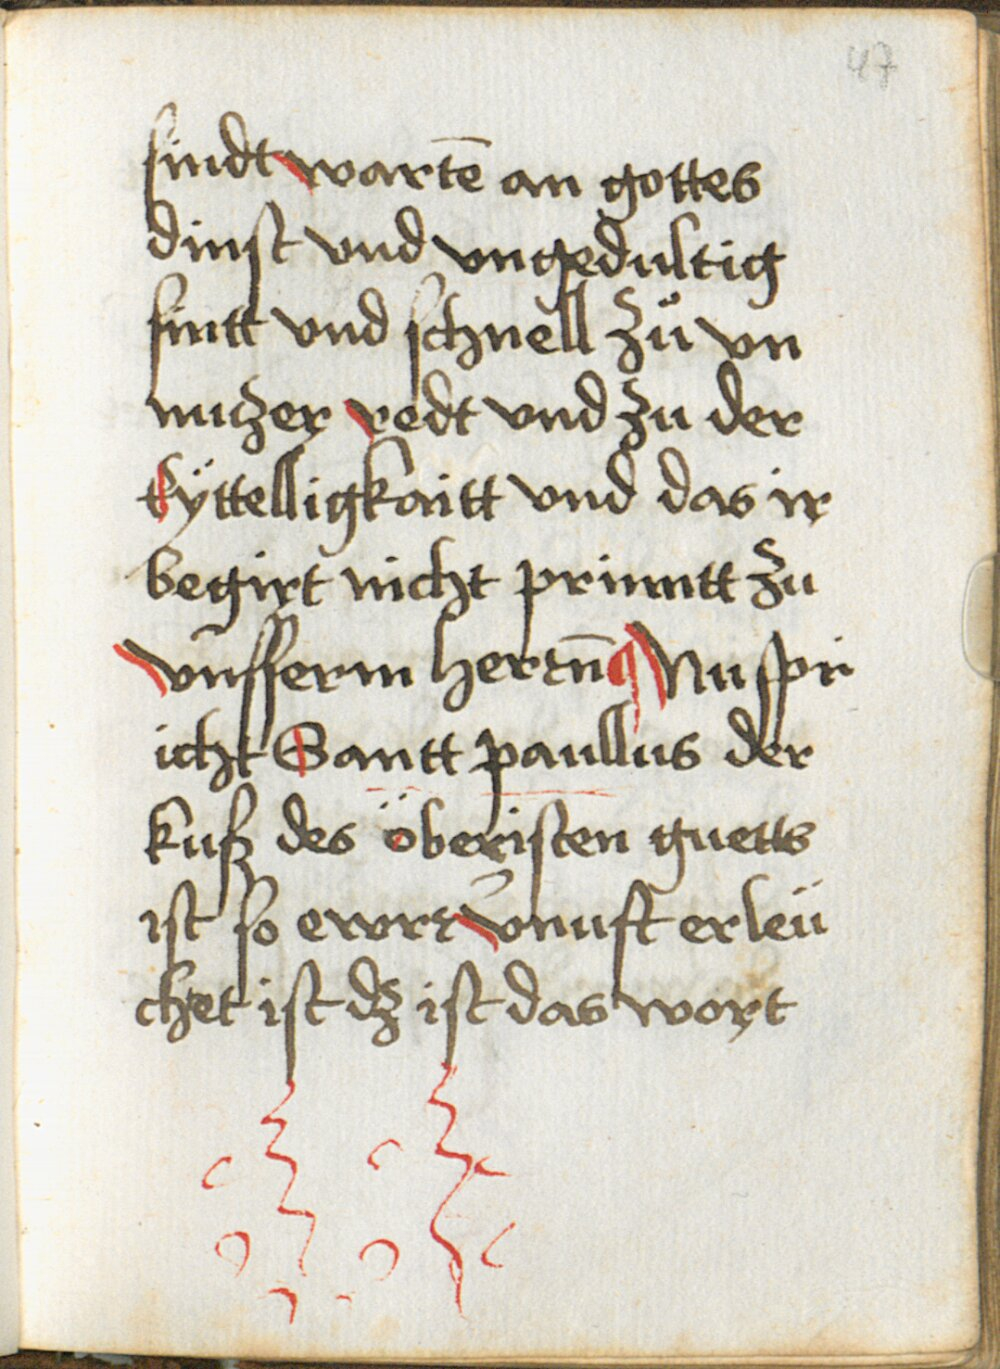 47
sindt wartē an gottes
dinst vnd vngedultig
sintt vnd schnell zů vn
nutzer redt vnd zu der
Eÿttelligkaitt vnd das ir
begirt nicht prinntt zu
vnsserm hertzn̄ ¶ Nu spri
icht Santt paullus der
kuß des öberisten guetts
ist so ewrz vnuft erleü
chtet ist dz ist das wort